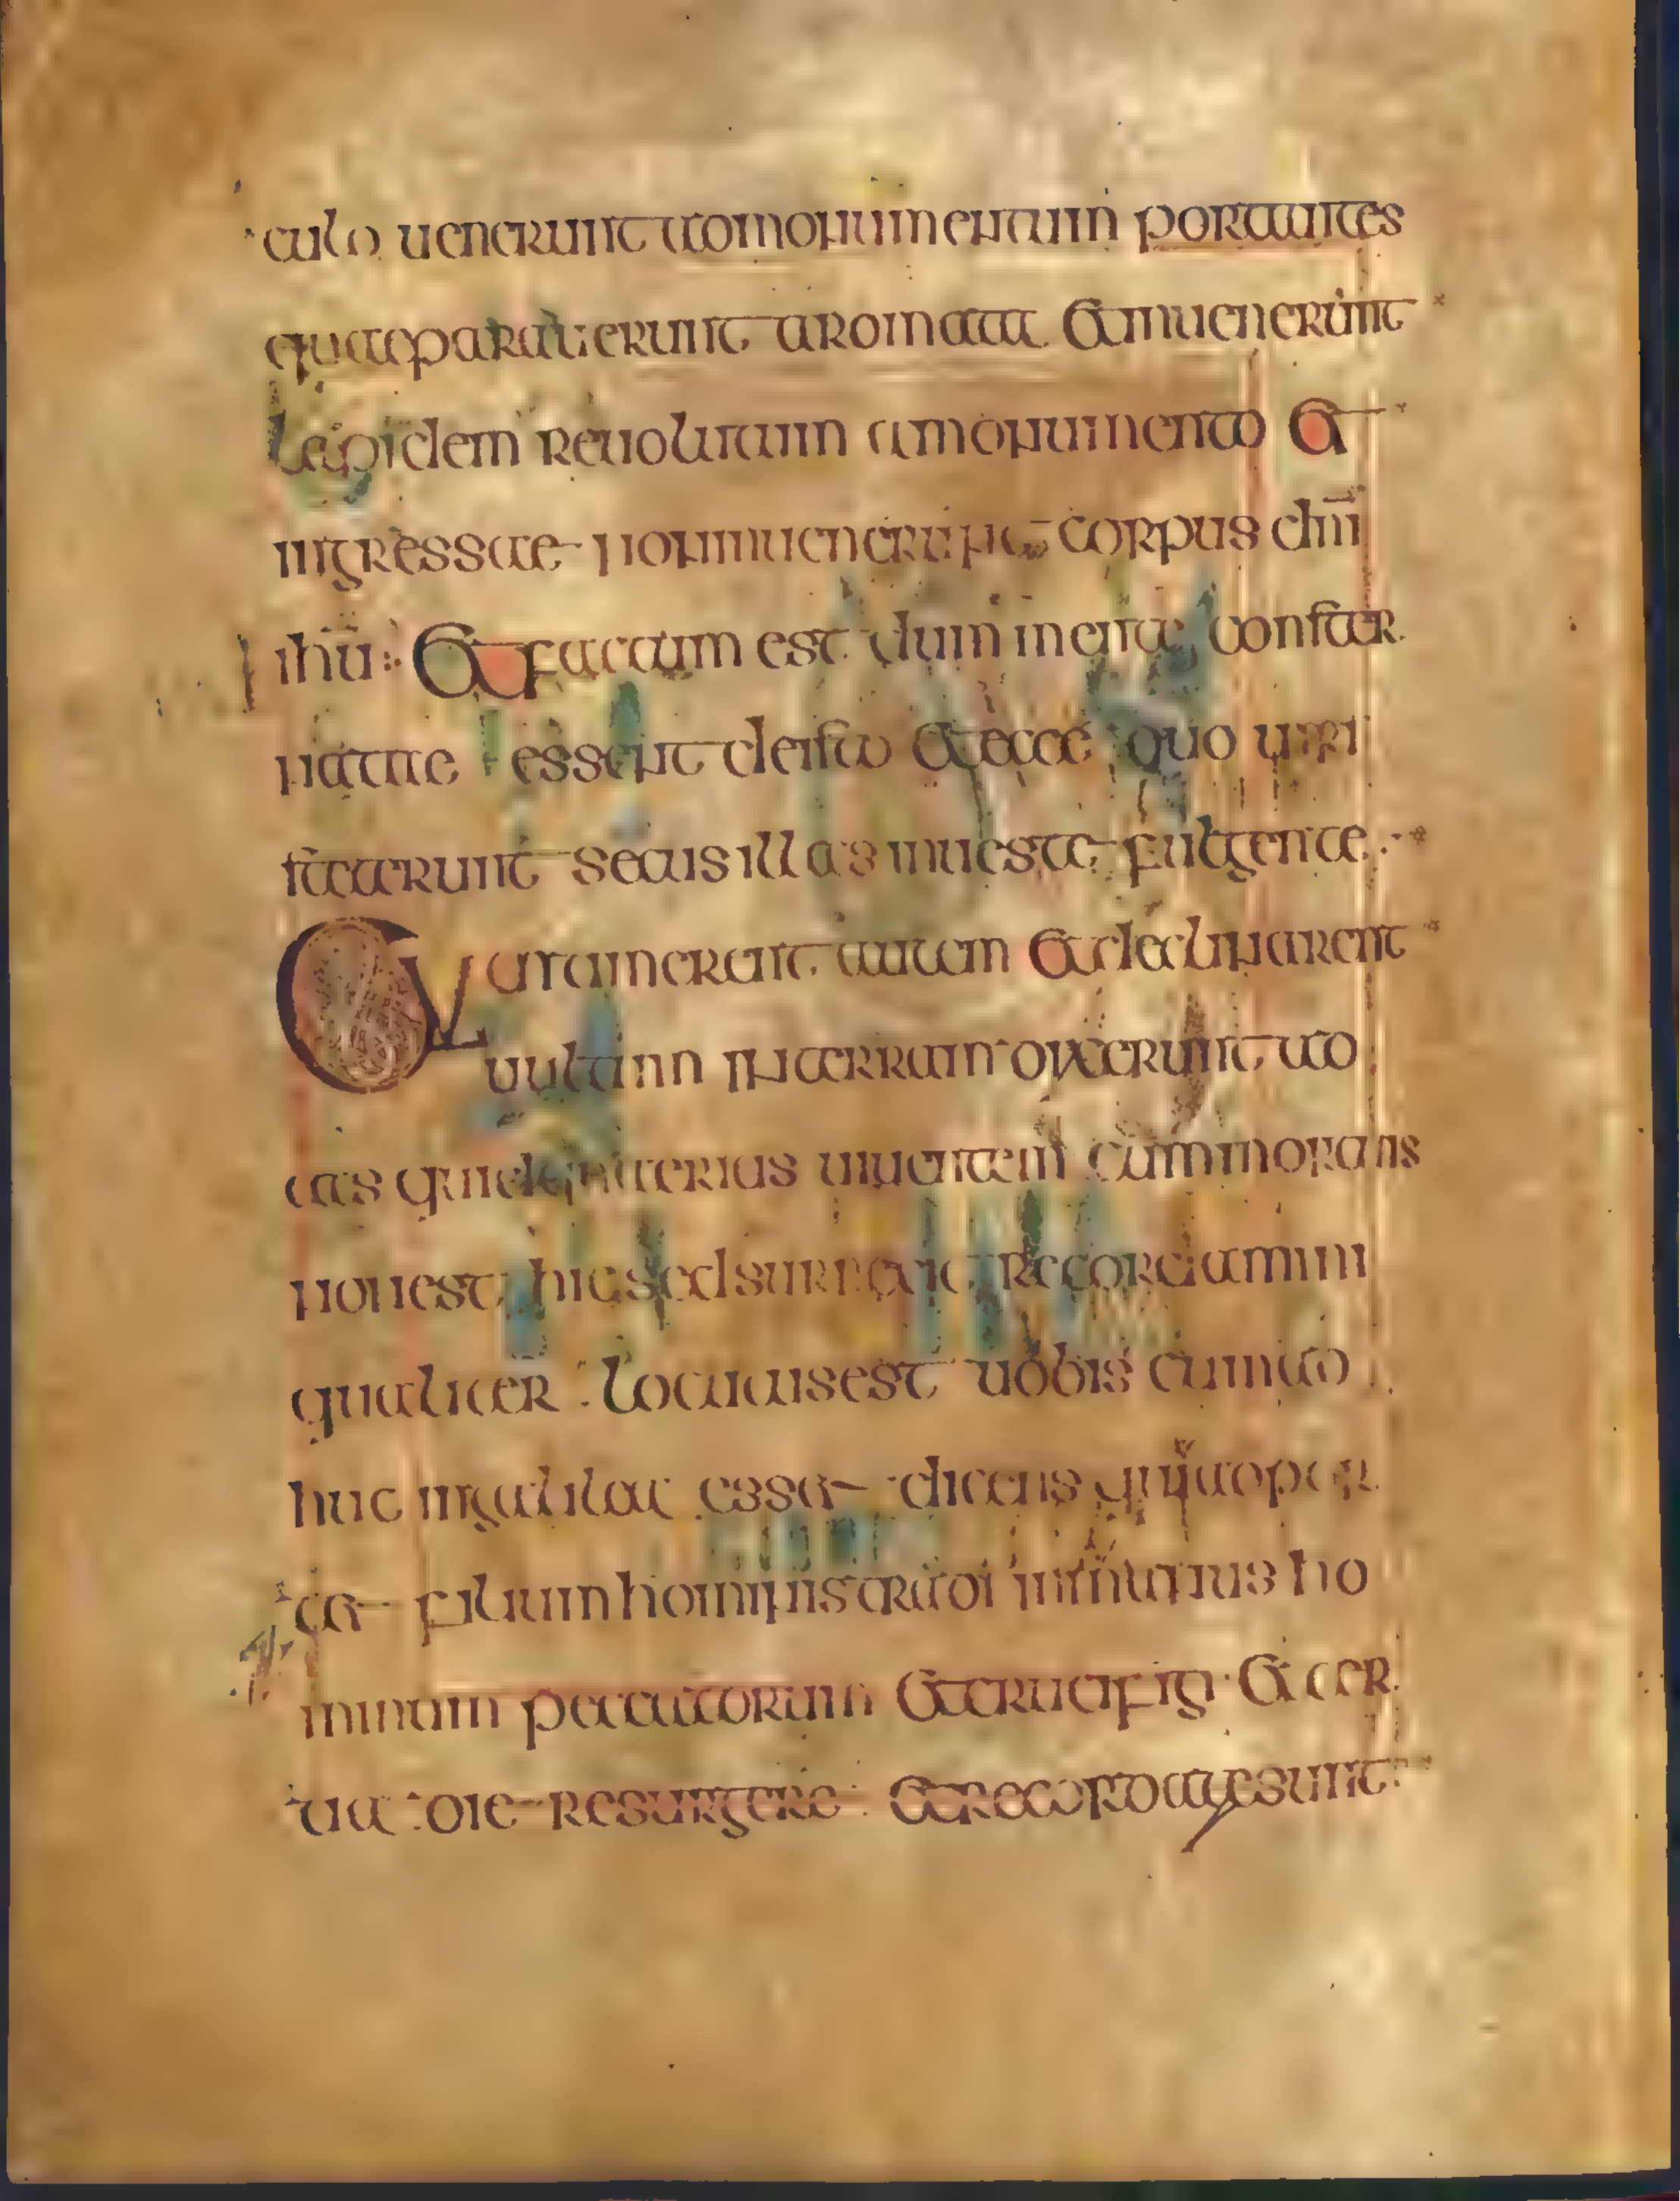 culo uenerunt ad monumentum portantes
quae parauerunt aromata et inuenerunt
lapidem reuolutum a monumento et
ingressae non inuenerunt corpus dni
ihu et factum est dum mente conster
natae essent de isto et ecce duo uiri
steterunt secus illas in ueste fulgente
Cum timerent autem et declinarent
uultum in terram dixerunt ad
eas quid queritis uiuentem cum mortuis
non est hic sed surrexit recordamini
qualiter locutus est uobis cum ad
huc in galilae esset dicens quia opor
tet filium hominis tradi in manus ho
minum peccatorum et crucifigi et ter
tia die resurgere et recordatae sunt